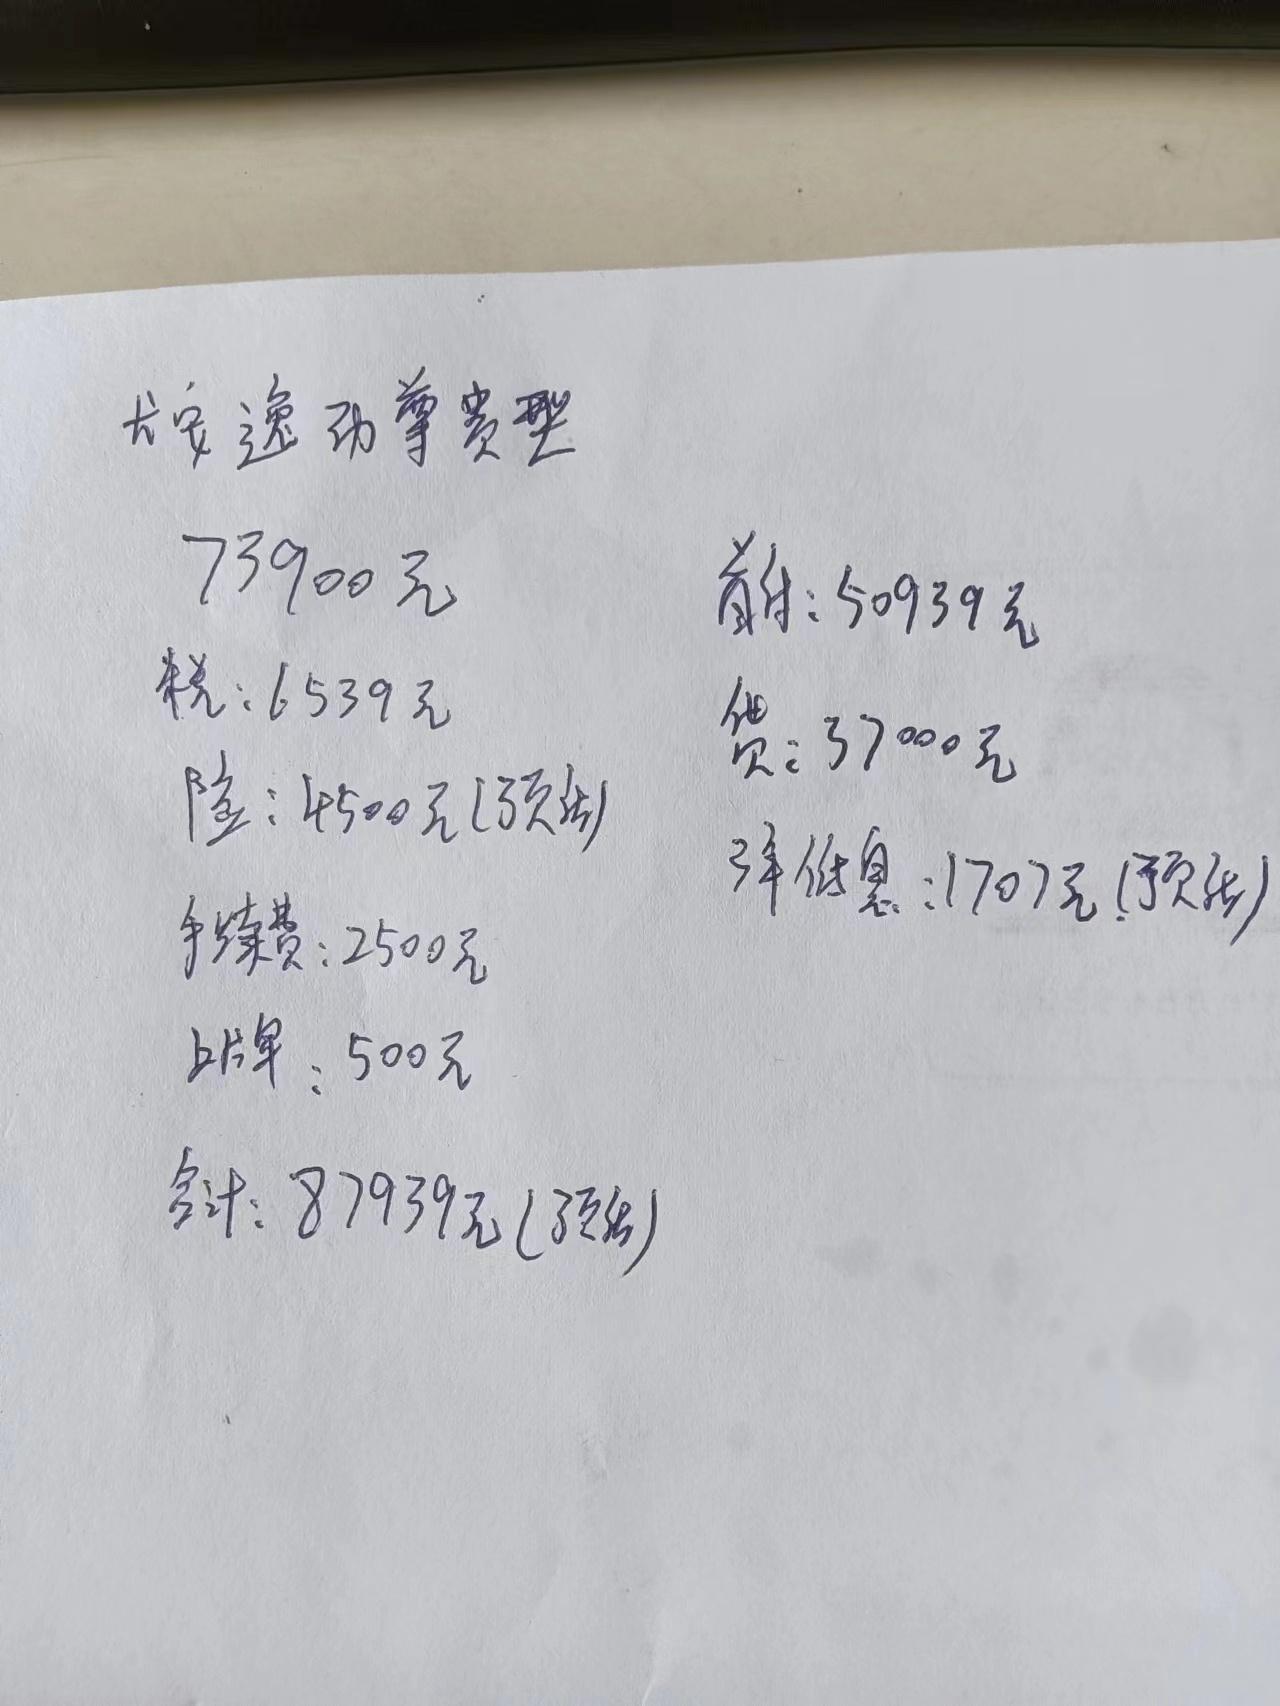 长安逸动尊贵型
73900元
税:6539元
险:4500元(预估)
手续费:2500元
上牌:500元
合计:87939元(预估)
首付:50939元
贷:37000元
3年低息:1707元(预估)